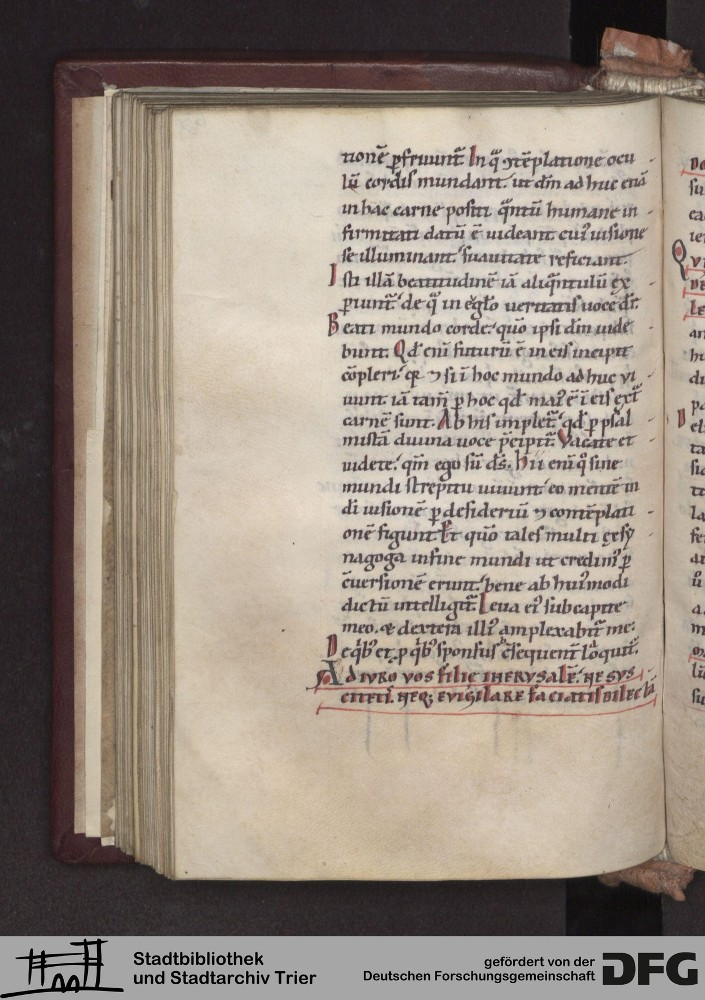 tionē ꝑfruunt᷑. In q̄ ↄtēplatione ocu
lū cordis mundant. ut dm̄ ad huc etiā
in hac carne positi q̄ntū humane in
firmitati datū ē uideant. cui᷒ uisione
se illuminant. suauitate reficiant.
Isti illā beatitudinē iā aliq̄ntulū ex
ꝑiunt᷑. de q̄ in eglo ueritatis uoce dr̄.
Beati mundo corde. quō ipsi dm̄ uide
bunt. Qd̄ eni futurū ē in eis incipit
cōpleri. qꝛ ⁊ si ī hoc mundo ad huc ui
uunt iā tam̄ p hoc qd̄ mai᷒ ē ī eis ext̄
carnē sunt. Ab his implet᷑ qd̄ p psal
mistā diuina uoce p̄cipit᷑. Vacate et
uidete. qm̄ ego sū ds̄. Hii eni q̊ sine
mundi strepitu uiuunt eo mentē in
di uisionē ꝑ desideriū ⁊ contēplati
onē figunt. Et quō tales multi ex sy
nagoga in fine mundi ut credim᷒ ꝑ
ↄ̄uersionē erunt. bene ab hui᷒modi
dictū intelligit᷑. Leua ei᷒ sub capite
meo. & dextera illi᷒ amplexabit᷑ me.
De qͥb᷒ et ꝓ qͥb᷒ sponsus ↄ̄sequent᷑ loquit᷑.
Adiuro uos filie iherusalē. ne sus
citetis. neq; euigilare faciatis dilectā
Stadtbibliothek
und Stadtarchiv Trier
gefördert von der
Deutschen Forschungsgemeinschaft
DFG